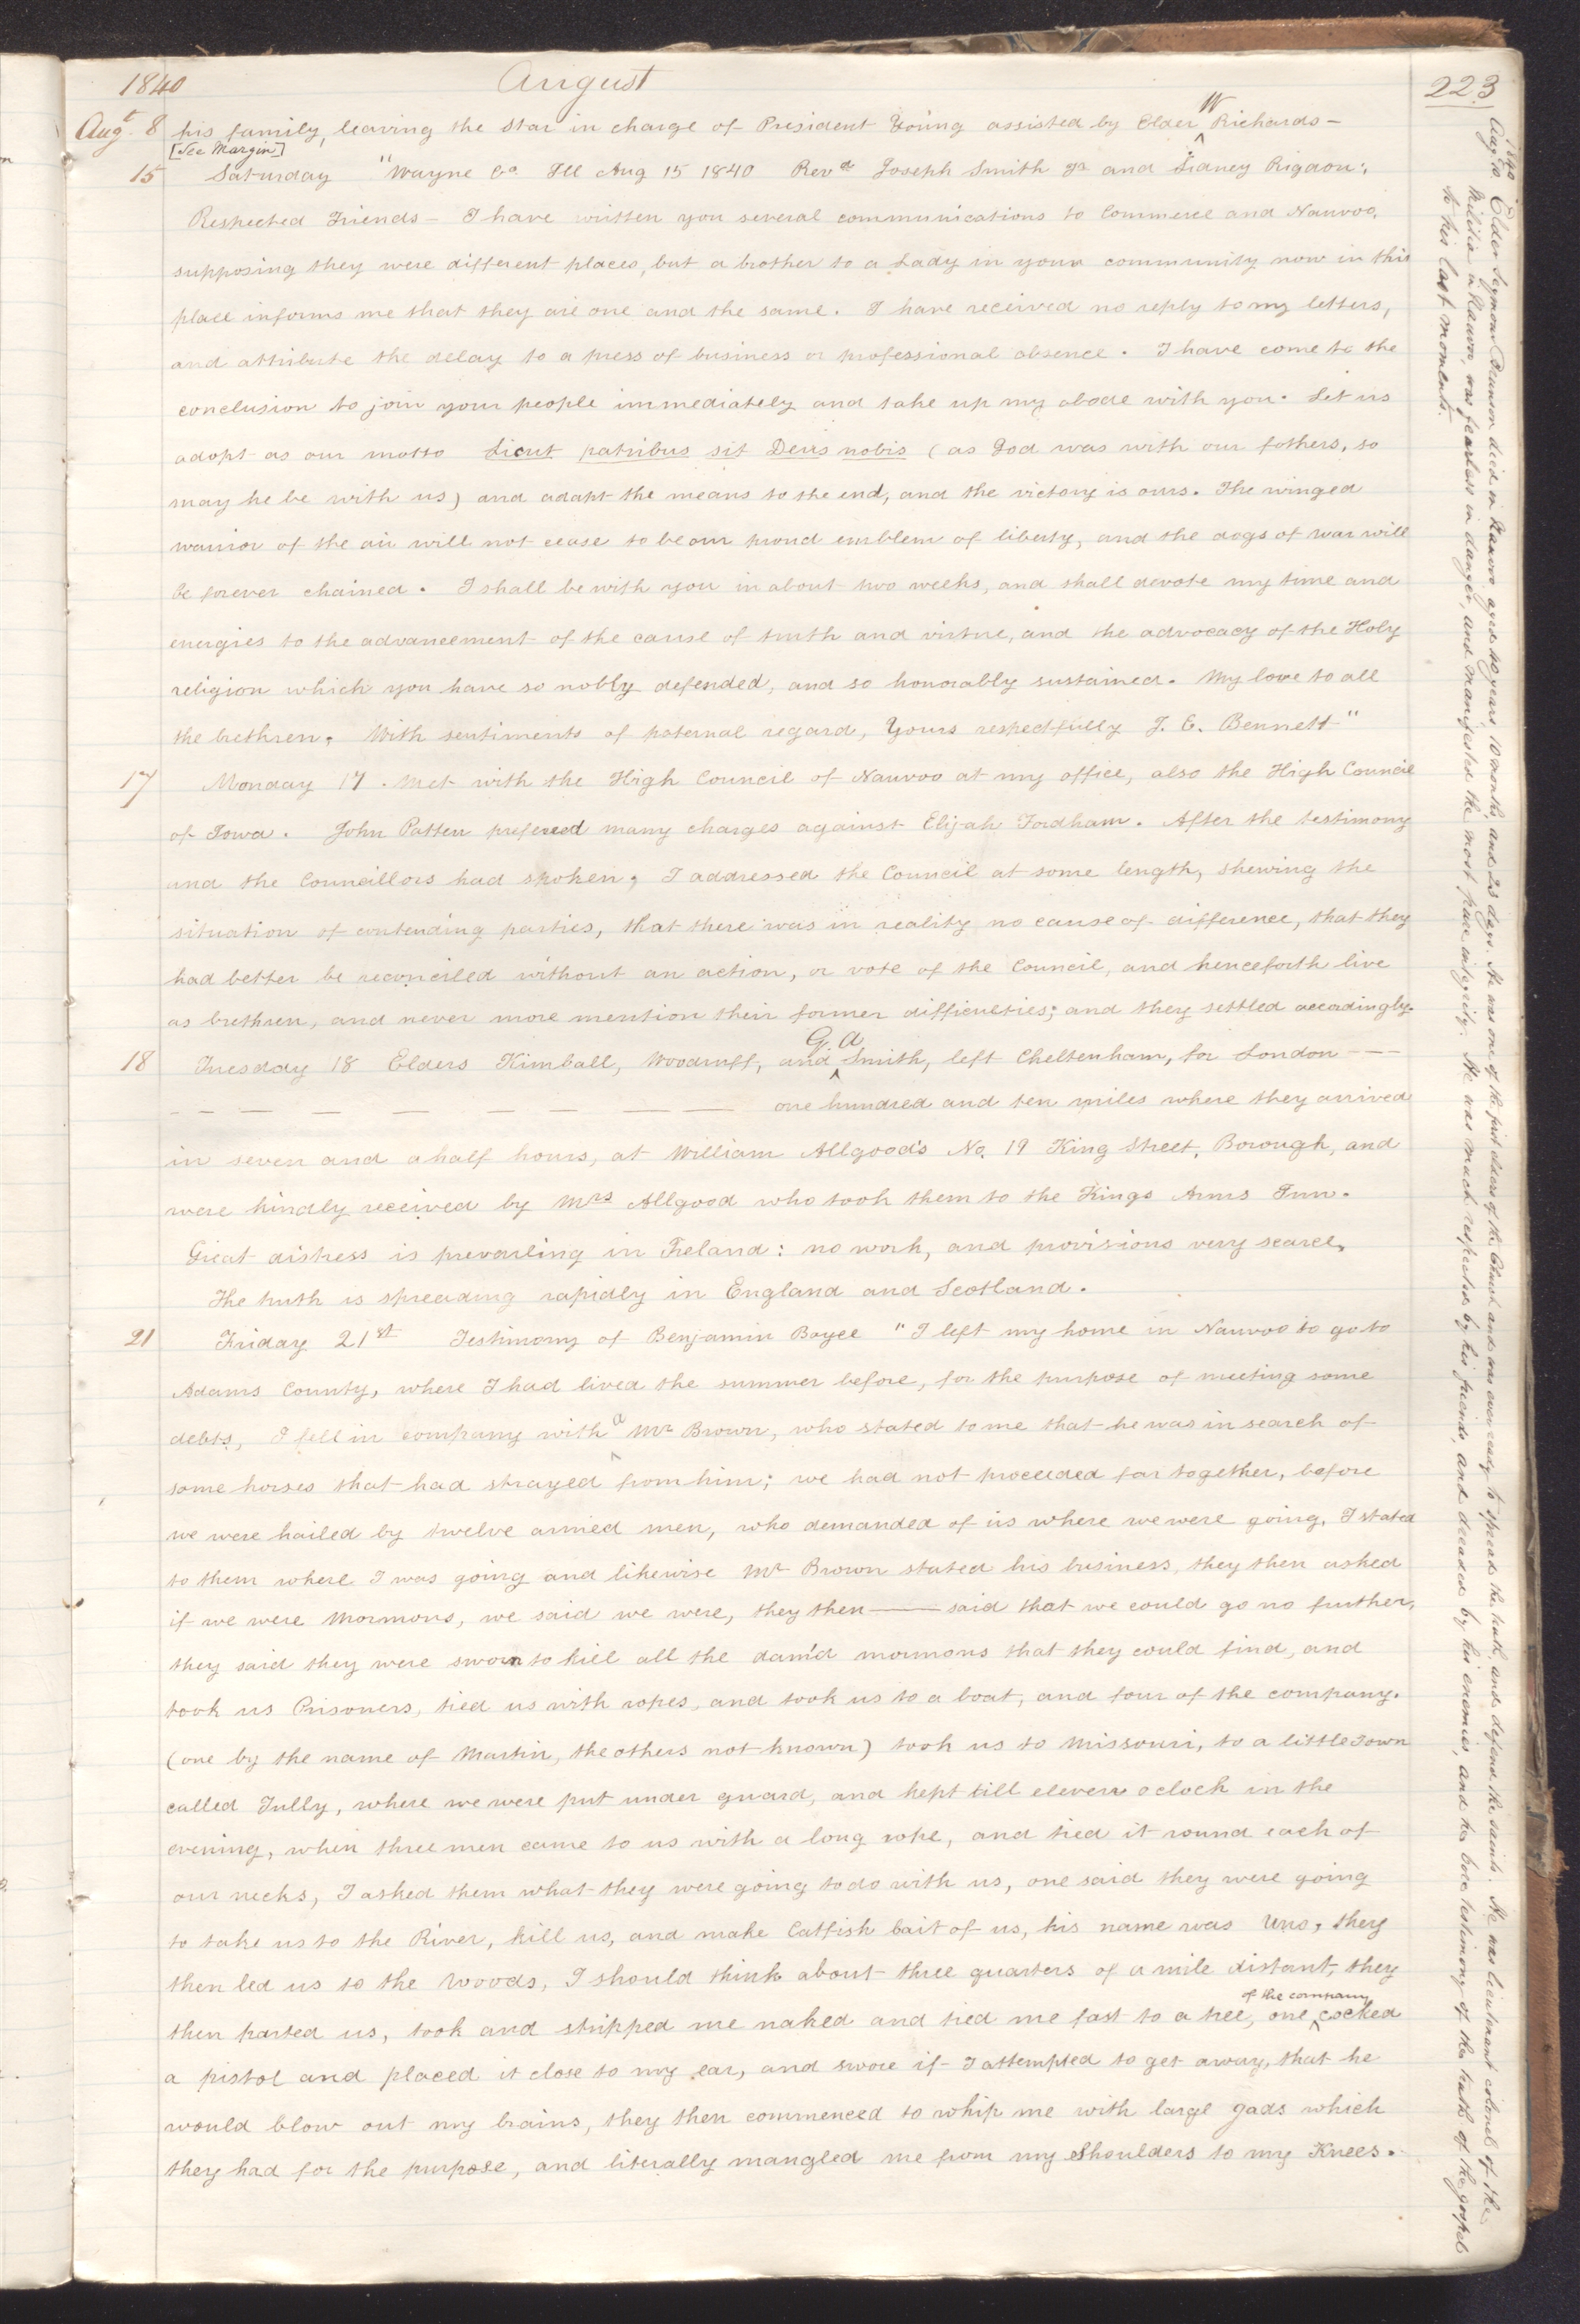 1840 August 223
Augt. 8 his family, leaving the Star in charge of President Young assisted by Elder W Richards —
[See Margin]
15 Saturday "Wayne Co. Ill Aug 15 1840 Revd Joseph Smith Jr and Sidney Rigdon:
Respected Friends — I have written you several communications to Commerce and Nauvoo,
supposing they were different places, but a brother to a Lady in your community now in this
place informs me that they are one and the same. I have received no reply to my letters,
and attribute the delay to a press of business or professional absence. I have come to the
conclusion to join your people immediately and take up my abode with you. Let us
adopt as our motto Sicut patribus sit Deus nobis (as God was with our fathers, so
may he be with us) and adapt the means to the end, and the victory is ours. The winged
warrior of the air will not cease to be our proud emblem of liberty, and the dogs of war will
be forever chained. I shall be with you in about two weeks, and shall devote my time and
energies to the advancement of the cause of truth and virtue, and the advocacy of the Holy
religion which you have so nobly defended, and so honorably sustained. My love to all
the brethren, With sentiments of paternal regard, Yours respectfully J. C. Bennett"
17 Monday 17. Met with the High Council of Nauvoo at my office, also the High Council
of Iowa. John Patten prefered many charges against Elijah Fordham. After the testimony
and the Councillors had spoken, I addressed the Council at some length, shewing the
situation of contending parties, that there was in reality no cause of difference, that they
had better be reconciled without an action, or vote of the Council, and henceforth live
as brethren, and never more mention their former difficulties; and they settled accordingly.
18 Tuesday 18 Elders Kimball, Woodruff, and G. A. Smith, left Cheltenham, for London —
— — — — — — — — one hundred and ten miles where they arrived
in seven and a half hours, at William Allgood's No. 19 King Street, Borough, and
were kindly received by Mrs Allgood who took them to the Kings Arms Inn.
Great distress is prevailing in Ireland: no work, and provisions very scarce,
The truth is spreading rapidly in England and Scotland.
21 Friday 21st Testimony of Benjamin Boyce "I left my home in Nauvoo to go to
Adams County, where I had lived the summer before, for the purpose of meeting some
debts, I fell in company with a Mr Brown, who stated to me that he was in search of
some horses that had strayed from him; we had not proceeded far together, before
we were hailed by twelve armed men, who demanded of us where we were going, I stated
to them where I was going and likewise Mr Brown stated his business, they then asked
if we were Mormons, we said we were, they then — said that we could go no further,
they said they were sworn to kill all the dam'd mormons that they could find, and
took us Prisoners, tied us with ropes, and took us to a boat, and four of the company.
(one by the name of Martin, the others not known) took us to Missouri, to a little Town
called Tully, where we were put under guard, and kept till eleven o clock in the
evening, when three men came to us with a long rope, and tied it round each of
our necks, I asked them what they were going to do with us, one said they were going
to take us to the River, kill us, and make Catfish bait of us, his name was Uno, they
then led us to the Woods, I should think about three quarters of a mile distant, they
then parted us, took and stripped me naked and tied me fast to a tree, one of the company cocked
a pistol and placed it close to my ear, and swore if I attempted to get away, that he
would blow out my brains, they then commenced to whip me with large gads which
they had for the purpose, and literally mangled me from my Shoulders to my Knees.
1840
Aug 10 Elder Seymour Brunson died in Nauvoo aged 40 years 10 months, and 23 days. He was one of the first elders of the Church and was ever ready to spread the truth, and defend the saints. He was lieutenant colonel of the
Militia in Nauvoo, was fearless in danger, and manifested the most pure integrity. He was much respected by his friends, and dreaded by his enemies, and he bore testimony of the truth of the gospel
to his last moments.